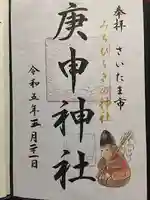 奉拝 さいたま市
みちひらきの神社
庚申神社
令和五年五月二十一日